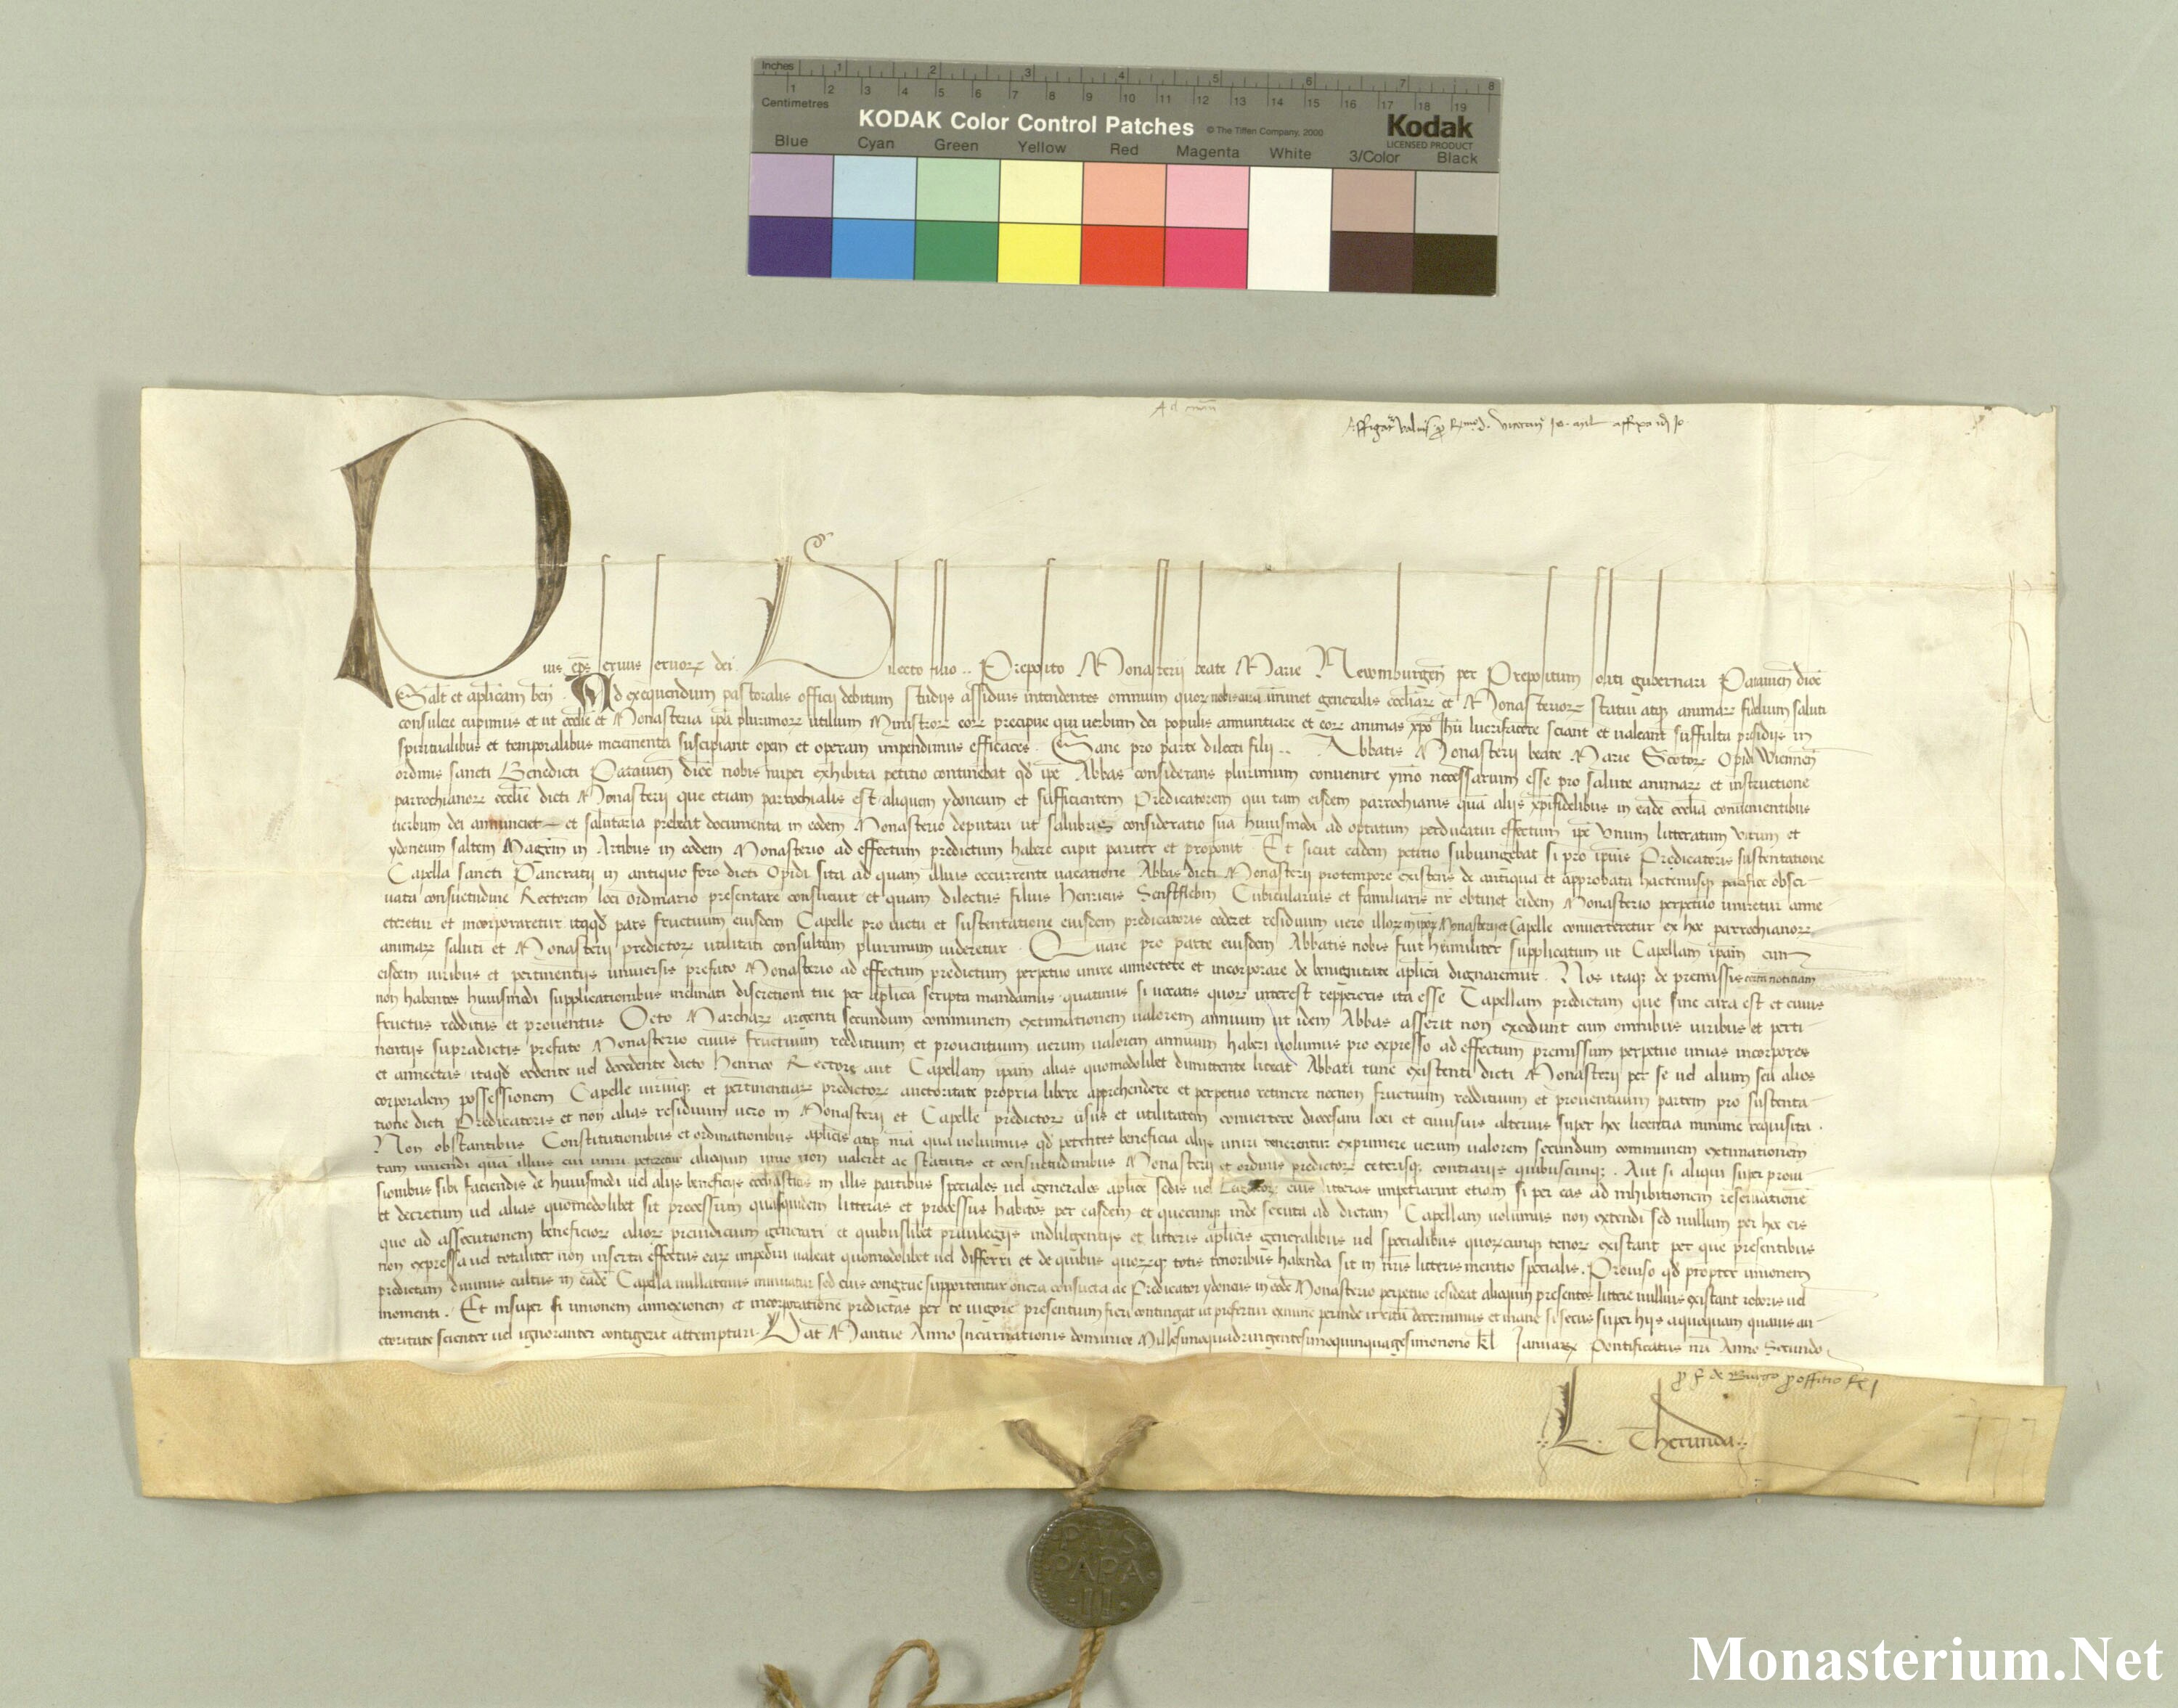 Inches 1 2 3 4 5 6 7 8
Centimetres 1 2 3 4 5 6 7 8 9 10 11 12 13 14 15 16 17 18 19
KODAK Color Control Patches © The Tiffen Company, 2000 Kodak
LICENSED PRODUCT
Blue Cyan Green Yellow Red Magenta White 3/Color Black
Pius ep̄s servus servoꝝ dei Dilecto filio .. Preposito Monasterii beate Marie Newmburgen̄ per Prepositum soliti gubernari Patavien̄ dioc̄
Salt̄ et aplicam ben̄ . Ad exequendum pastoralis officij debitum studijs assiduis intendentes omnium quoꝝ nobis cura iminet generalis eccliaꝝ et Monasterioꝝ statui atqꝫ animaꝝ fidelium saluti
consulere cupimus et ut ecclie et Monasteria ip̄a plurimoꝝ utilium Ministroꝝ eoꝝ precipue qui verbum dei populis annuntiare et eoꝝ animas xp̄o Ihū lucrifacere sciant et valeant suffulta presidijs in
spiritualibus et temporalibus incrementa suscipiant opem et operam impendimus efficaces . Sane pro parte dilecti filii .. Abbatis Monasterij beate Marie Scotoꝝ Opidi Wiennen̄
ordinis sancti Benedicti Patavien̄ dioc̄ nobis nuper exhibita petitio continebat qd̄ ip̄e Abbas considerans plurimum convenire ymo necessarium esse pro salute animaꝝ et instructione
parrochianoꝝ ecclie dicti Monasterij que etiam parrochialis est aliquem ydoneum et sufficientem Predicatorem qui tam eisdem parrochianis quā alijs xp̄ifidelibus in eadē ecclia convenientibus
verbum dei annunciet et salutaria prebeat documenta in eodem Monasterio deputari ut salubris consideratio sua huiusmodi ad optatum perducatur effectum ip̄e Unum litteratum Virum et
ydoneum saltem Magr̄m in Artibus in eodem Monasterio ad effectum predictum habere cupit pariter et proponit Et sicut eadem petitio subiungebat si pro ip̄ius Predicatoris sustentatione
Capella sancti Pancratij in antiquo foro dicti Opidi sita ad quam illius occurrente vacatione Abbas dicti Monasterij protempore existens de antiqua et approbata hactenusqꝫ pacifice obser-
vata consuetudine Rectorem loci ordinario presentare consuevit et quam dilectus filius Henricus Senftleben Cubicularius et familiaris nr̄ obtinet eidem Monasterio perpetuo uniretur anne
cteretur et incorporaretur itaqd̄ pars fructuum eiusdem Capelle pro victu et sustentatione eiusdem predicatoris cederet residuum vero illoꝝ in ipoꝝ Monasterij et Capelle converteretur ex hoc parrochianoꝝ
animaꝝ saluti et Monasterij predictoꝝ utilitati consultum plurimum videretur . Quare pro parte eiusdem Abbatis nobis fuit humiliter supplicatum ut Capellam ip̄am cum
eisdem iuribus et pertinentijs universis prefato Monasterio ad effectum predictum perpetuo unire annectere et incorporare de benignitate aplica dignaremur . Nos itaqꝫ de premissis certam notitiam
non habentes huiusmodi supplicationibus inclinati discretioni tue per aplica scripta mandamus quatinus si vocatis quoꝝ interest reppereris ita esse Capellam predictam que sine cura est et cuius
fructus redditus et proventus Octo Marchaꝝ argenti secundum communem extimationem valorem annuum ut idem Abbas asserit non excedunt cum omnibus iuribus et perti-
nentijs supradictis prefato Monasterio cuius fructuum reddituum et proventuum verum valorem annuum haberi volumus pro expresso ad effectum premissum perpetuo unias incorpores
et annectas itaqd̄ cedente vel decedente dicto Henrico Rectore aut Capellam ip̄am alias quomodolibet dimittente liceat Abbati tunc existenti dicti Monasterij per se vel alium seu alios
corporalem possessionem Capelle iuriumqꝫ et pertinentiaꝝ predictoꝝ auctoritate propria libere apprehendere et perpetuo retinere necnon fructuum reddituum et proventuum partem pro sustenta-
tione dicti Predicatoris et non alias residuum vero in Monasterij et Capelle predictoꝝ usus et utilitatem convertere diocesani loci et cuiusvis alterius super hoc licentia minime requisita .
Non obstantibus Constitutionibus et ordinationibus aplicis atqꝫ nr̄a qua voluimus qd̄ petentes beneficia alijs uniri tenerentur exprimere verum valorem secundum communem extimationem
tam uniendi quā illius cui uniri peteretur alioquin unio non valeret ac statutis et consuetudinibus Monasterij et ordinis predictoꝝ ceterisqꝫ contrarijs quibuscunqꝫ . Aut si aliqui super provi
sionibus sibi faciendis de huiusmodi vel alijs beneficijs ecclesiasticis in illis partibus speciales vel generales aplice sedis vel Legatoꝝ eius litteras impetrarint etiam si per eas ad inhibitionem reservationē
et decretum vel alias quomodolibet sit processum quasquidem litteras et processus habitos per easdem et quecunqꝫ inde secuta ad dictam Capellam volumus non extendi sed nullum per hoc eis
quo ad assecutionem beneficioꝝ alioꝝ preiudicium generari et quibuslibet privilegijs indulgentijs et litteris aplicis generalibus vel specialibus quoꝝcunqꝫ tenoꝝ existant per que presentibus
non expressa vel totaliter non inserta effectus eaꝝ impediri valeat quomodolibet vel differri et de quibus quoꝝqꝫ totis tenoribus habenda sit in nr̄is litteris mentio specialis . Proviso qd̄ propter unionem
predictam divinus cultus in eadē Capella nullatenus minuatur sed eius congrue supportentur onera consueta ac Predicator ydoneus in eodē Monasterio perpetuo resideat alioquin presentes littere nullius existant roboris vel
momenti . Et insuper si unionem annexionem et incorporationē predictas per te vigore presentium fieri contingat ut prefertur exnunc perinde irritū decernimus et inane si secus super hijs a quoquam quavis au-
ctoritate scienter vel ignoranter contigerit attemptari. Dat̄ Mantue Anno Incarnationis dominice Millesimoquadringentesimoquinquagesimonono kl̄ Januaꝝ Pontificatus nr̄i Anno Secundo
p̱ f de Burgo p̱ offitio
L. Therunda
PIVS
PAPA
·II·
Monasterium.Net